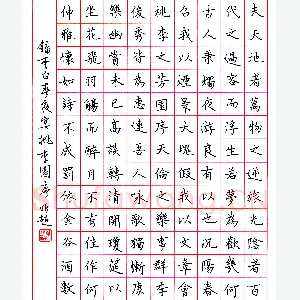 夫天地者萬物之逆旅光陰者百
代之過客而浮生若夢為歡幾何
古人秉燭夜遊良有以也況陽春
召我以煙景大塊假我以文章會
桃李之芳園序天倫之樂事群季
俊秀皆為惠連吾人詠歌獨慚康
樂幽賞未已高談轉清開瓊筵以
坐花飛羽觴而醉月不有佳作何
伸雅懷如詩不成罰依金谷酒數
錄李白春夜宴桃李園序